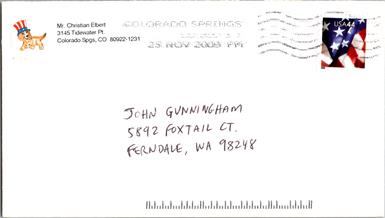 Mr. Christian Elbert
3145 Tidewater Pt.
Colorado Spgs, CO 80922-1231
COLORADO SPRINGS
25 NOV 2009 PM
USA 44
JOHN GUNNINGHAM
5892 FOXTAIL CT.
FERNDALE, WA 98248